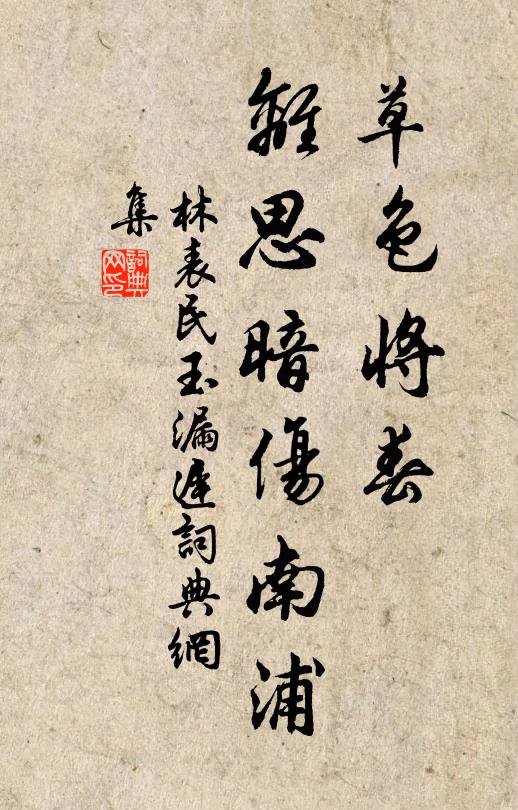 草色將春
離思暗傷南浦
林表民玉漏遲詞典網
集
詞典
网印